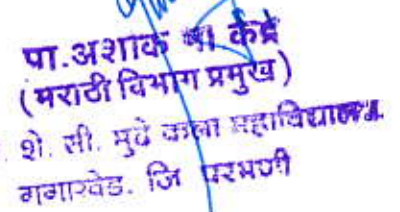 पा.अशाक बा केंद्रे
(मराठी विभाग प्रमुख)
शे. ली. मुढे कला महाविद्यालय.
गगाखेड. जि परभणी